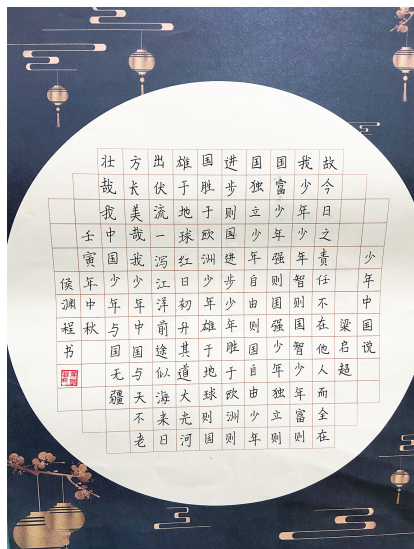 少年中国说
梁启超
故今日之责任不在他人而全在
我少年少年智则国智少年富则
国富少年强则国强少年独立则
国独立少年自由则国自由少年
进步则国进步少年胜于欧洲则
国胜于欧洲少年雄于地球则国
雄于地球红日初升其道大光河
出伏流一泻江洋前途似海来日
方长美哉我少年中国与天不老
壮哉我中国少年与国无疆
壬寅年中秋
侯渊程书